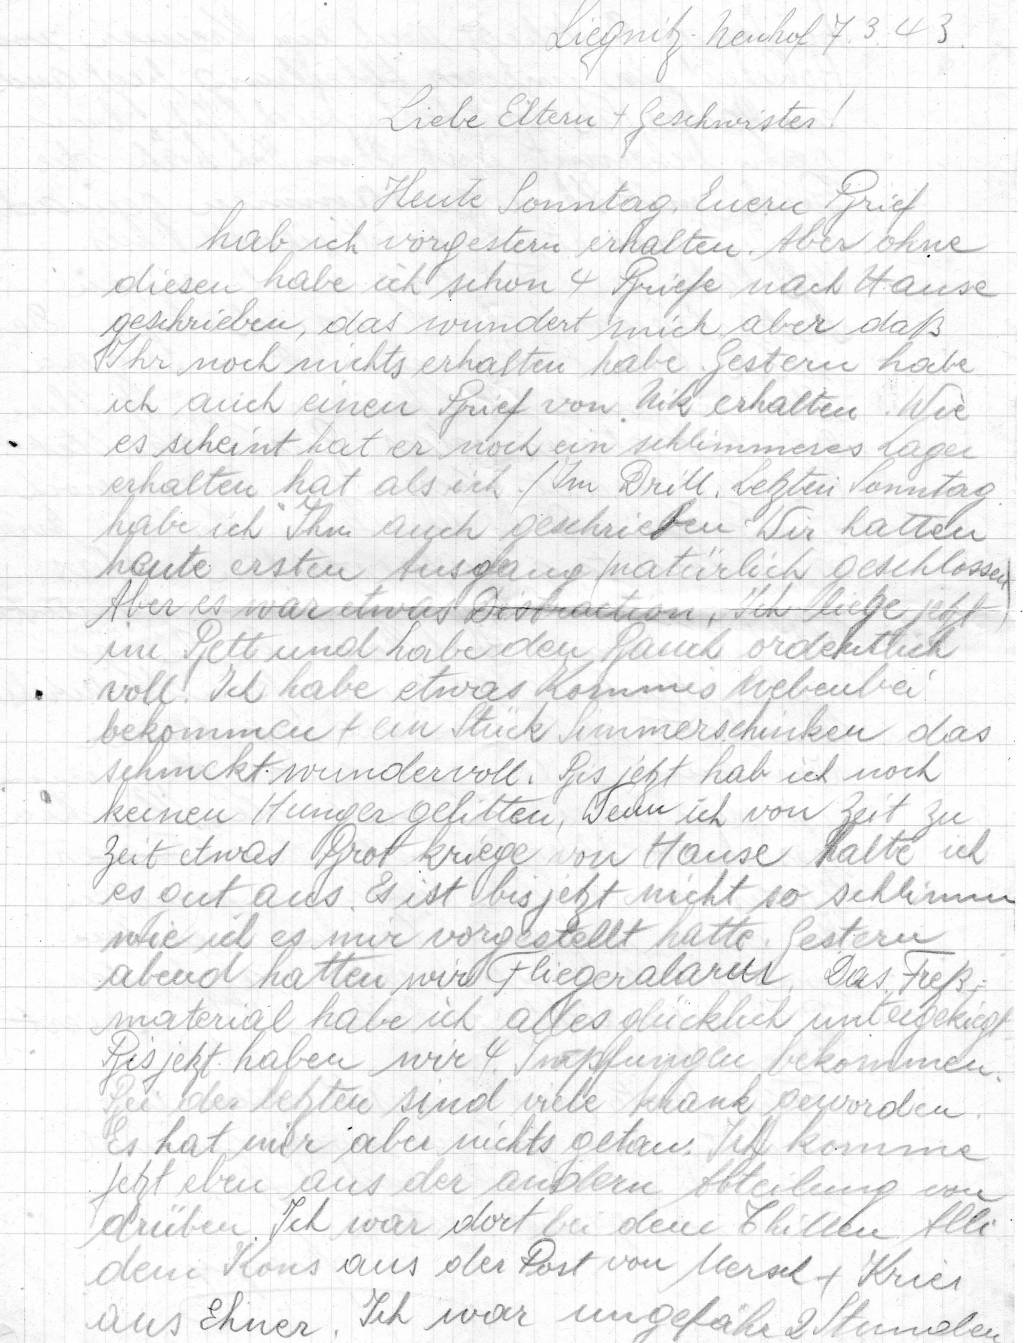 Liegnitz-Neuhof 7.3.43.
Liebe Eltern + Geschwister!
Heute Sonntag. Euern Brief
hab ich vorgestern erhalten. Aber ohne
diesen habe ich schon 4 Briefe nach Hause
geschrieben, das wundert mich aber daß
Ihr noch nichts erhalten habe. Gestern habe
ich auch einen Brief von Nik erhalten. Wie
es scheint hat er noch ein schlimmeres Lager
erhalten hat als ich. / Im Drill. Letzten Sonntag
habe ich Ihm auch geschrieben. Wir hatten
heute ersten Ausgang (natürlich geschlossen)
Aber es war etwas Distraction, Ich liege jetzt
im Bett und habe den Bauch ordentlich
voll. Ich habe etwas Kommis nebenbei
bekommen + ein Stück Simmerschinken das
schmckt wundervoll. Bis jetzt hab ich noch
keinen Hunger gelitten, Wenn ich von Zeit zu
Zeit etwas Brot kriege von Hause halte ich
es gut aus. Es ist bis jetzt nicht so schlimm
wie ich es mir vorgestellt hatte. Gestern
abend hatten wir Fliegeralarm. Das Freß-
material habe ich alles glücklich untergekriegt
Bis jetzt haben wir 4 Impfungen bekommen.
Bei der letzten sind viele krank geworden.
Es hat mir aber nichts getan. Ich komme
jetzt eben aus der andern Abteilung von
drüben. Ich war dort bei dem Thillen Alli
dem Kons aus der Post von Mersch + Krier
aus Ehner. Ich war ungefähr 2 Stunden